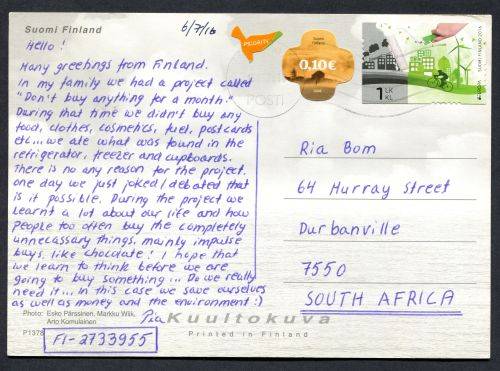 Suomi Finland
6/7/16
Hello!
Many greetings from Finland.
In my family we had a project called
"Don't buy anything for a month."
During that time we didn't buy any
food, clothes, cosmetics, fuel, postcards
etc... we ate what was found in the
refrigerator, freezer and cupboards.
There is no any reason for the project.
one day we just joked / debated that
is it possible. During the project we
learnt a lot about our life and how
people too often buy the completely
unnecassary things, mainly impulse
buys, like chocolate! I hope that
we learn to think before we are
going to buy something... Do we really
need it... in this case we save ourselves
as well as money and the environment :)
Pia
Photo: Esko Pärssinen, Markku Wiik,
Arto Komulainen
P1378
FI-2733955
Kuultokuva
Printed in Finland
PRIORITY
Suomi
Finland
0.10€
POSTI
1 LK
KL
SUOMI FINLAND 2016
Ria Bom
64 Murray Street
Durbanville
7550
SOUTH AFRICA